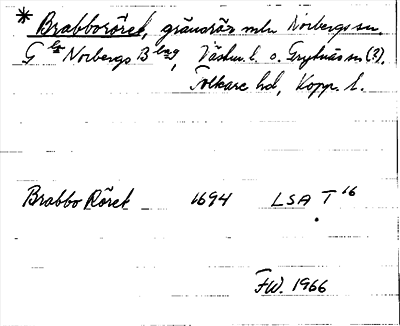 * Brabborörek, gränsrös mln Norbergs sn,
G la Norbergs Blag, Västm. l. o. Grytnäs sn (?),
Folkare hd, Kopp. l.
Brabbo Rörek 1694 LSA T 16
FW. 1966